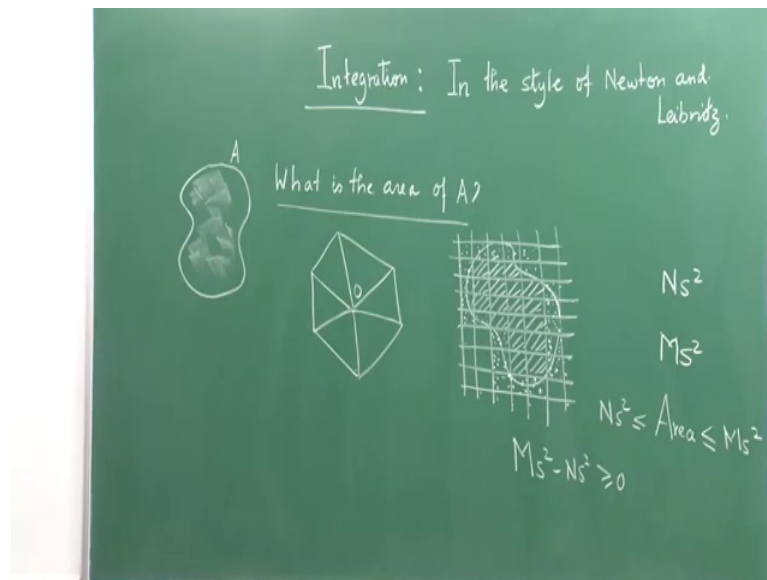 Integration: In the style of Newton and
Leibnitz.
A
What is the area of A?
O
Ns²
Ms²
Ns² ≤ Area ≤ Ms²
Ms² - Ns² ≥ 0